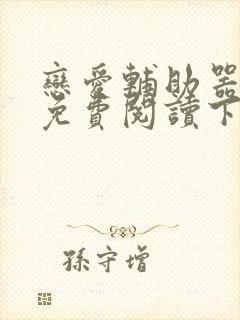 戀愛輔助器
免費閱讀下
孫守增